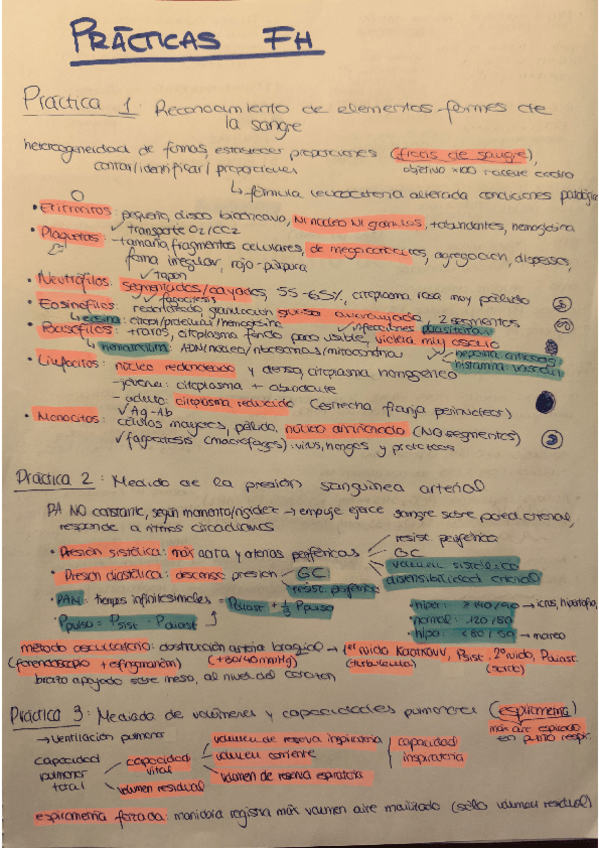 PRÁCTICAS FH
Práctica 1: Reconocimiento de elementos formes de
la sangre
heterogeneidad de formas, establecer proporciones (ficcis de sangre),
contar/identificar/proporciones objetivo x100
↳ fórmula leucocitaria alterada condiciones patológicas
• Eritrocitos: pequeño, disco bicóncavo, NI núcleo NI gránulos, +abundantes, hemoglobina
✓ transporte O2/CO2
• Plaquetas: -tamaño, fragmentos celulares, de megacariocitos, agregación, dispersos,
forma irregular, rojo-púrpura
✓ tapón
• Neutrófilos: segmentados/cayados, 55-65%, citoplasma rosa muy pálido
✓ fagocitosis
• Eosinófilos: granulación gruesa anaranjada, 2 segmentos
↳ eosina: citopl/proteínas/hemoglobina ✓ infecciones parasitarias
• Basófilos: +raros, citoplasma fondo poco visible, violeta muy oscuro
↳ hematoxilina: ADN/núcleo/ribosomas/mitocondrias ✓ heparina
histamina:
• Linfocitos: núcleo redondeado y denso, citoplasma homogéneo
- jóvenes: citoplasma + abundante
- adulto: citoplasma reducido (estrecha franja perinuclear)
✓ Ag-Ab
• Monocitos: células mayores, pálido, núcleo arriñonado (NO segmentos)
✓ fagocitosis (macrófagos): virus, hongos y protozoos
Práctica 2: Medida de la presión sanguínea arterial
PA NO constante, según momento/rigidez → empuje ejerce sangre sobre pared arterial,
responde a ritmos circadianos
• Presión sistólica: máx aorta y arterias periféricas
resist. periférica
GC
volumen sistólico
distensibilidad arterial
• Presión diastólica: descenso presión
GC
resist. periférica
• PAM: tiempos infinitesimales = Pdiast + 1/3 Ppulso
• Ppulso = Psist - Pdiast
• hiper: > 140/90 → ictus, hipertrofia,
• normal: 120/80
• hipo: < 80/50 → mareo
método auscultatorio: obstrucción arteria braquial → 1er ruido Korotkow, Psist, 2º ruido, Pdiast.
(fonendoscopio + esfingmanóm) (+30/40mmHg) (turbulencia)
brazo apoyado sobre mesa, al nivel del corazón
Práctica 3: Mediada de volúmenes y capacidades pulmonares (espirometría)
→ Ventilación pulmonar
máx aire espirado
en punto respir.
capacidad pulmonar total
capacidad vital
volumen de reserva inspiratoria
volumen corriente
capacidad inspiratoria
volumen de reserva espiratoria
volumen residual
espirometría forzada: maniobra registra máx volumen aire movilizado (sólo volumen residual)